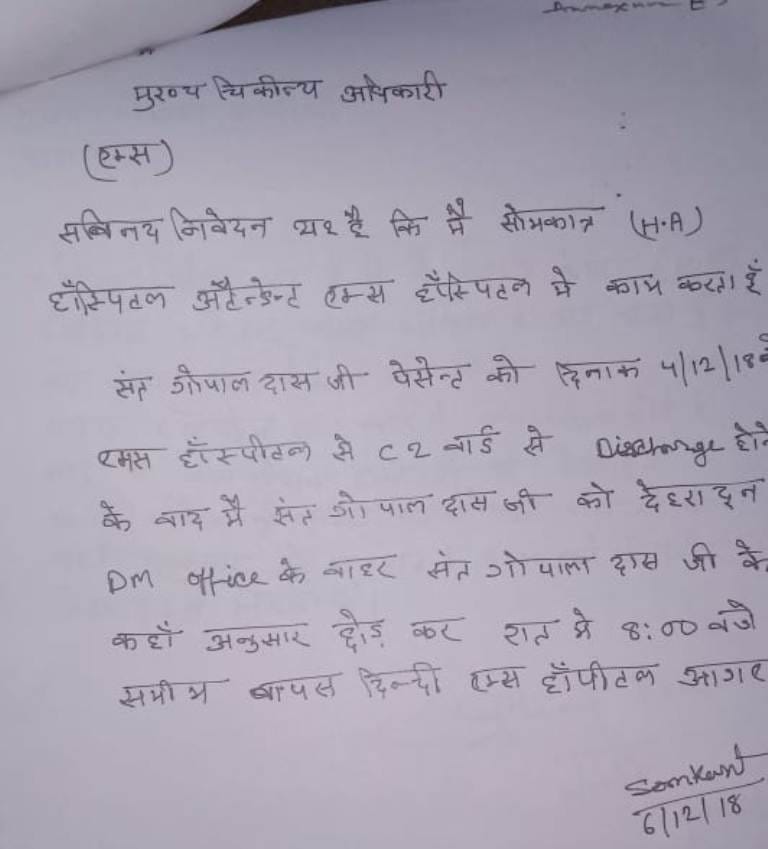 Annexure E
मुख्य चिकीत्य अधिकारी
(एम्स)
सविनय निवेदन यह है कि मै सोमकान्त (H.A)
हॉस्पिटल अटैन्डेन्ट एम्स हॉस्पिटल मे काम करता हूँ
संत गोपाल दास जी पेसेन्ट को दिनाक 4/12/18 को
एमस हॉस्पीटल से C 2 वार्ड से Discharge होने
के बाद मै संत गोपाल दास जी को देहरादून
DM office के बाहर संत गोपाल दास जी के
कहाँ अनुसार छोड़ कर रात मे 8:00 बजे
समीम वापस दिल्ली एम्स हॉपीटल आगए
Somkant
6/12/18